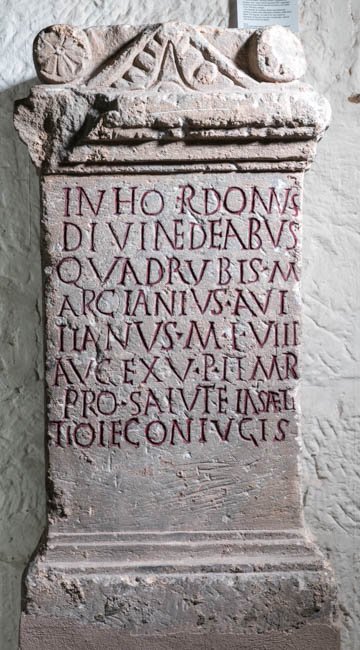 IN HO · R DOMVS
DIVINE DEABVS
QVADRVBIS · M
ARCIANIVS · AVI
TIANVS · M · L VIII
AVG EX V · P
PRO · SALVTE
CONIVGIS